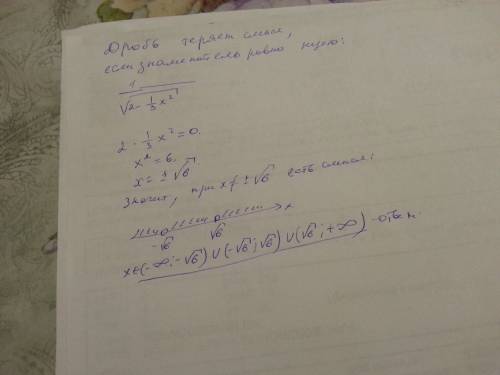 Дробь теряет смысл,
если знаменатель равно нулю:
1
√2 - 1/3 x²
2 - 1/3 x² = 0.
x² = 6.
x = ± √6
Значит, при x ≠ ± √6 есть смысл:
-√6 √6 x
x ∈ (-∞; -√6) ∪ (-√6; √6) ∪ (√6; +∞) - ответ.